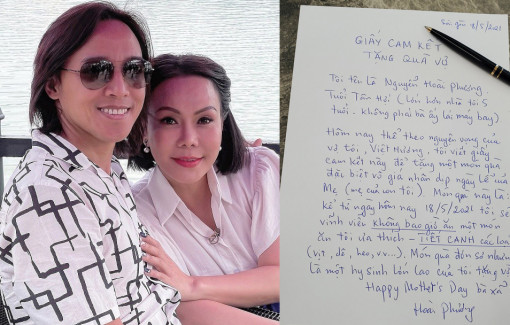 Sài Gòn 18/5/2021
GIẤY CAM KẾT
TẶNG QUÀ VỢ
Tôi tên là Nguyễn Hoài Phương.
Tuổi Tân Hợi (lớn hơn nhỏ tôi 5
tuổi. không phải bà ấy lái máy bay)
Hôm nay thể theo nguyện vọng của
vợ tôi, Việt Hương, tôi viết giấy
cam kết này để tặng một món quà
đặc biệt vô giá nhân dịp ngày lễ của
Mẹ (mẹ của con tôi). Món quà này là:
kể từ ngày hôm nay 18/5/2021 tôi, sẽ
vĩnh viễn không bao giờ ăn một món
ăn tôi ưa thích - TIẾT CANH các loại
(vịt, dê, heo, v.v...). Món quà đơn sơ nhưng
là một hy sinh lớn lao của tôi tặng vợ
Happy Mother's Day bà xã
Hoài Phương